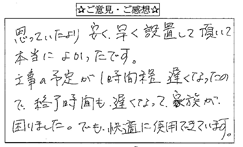 ☆ご意見・ご感想☆
思っていたより 安く、早く設置して頂いて
本当に よかったです。
工事の予定が 1時間程 遅くなったの
で、終了時間も 遅くなって、家族が
困りました。でも、快適に使用できています。